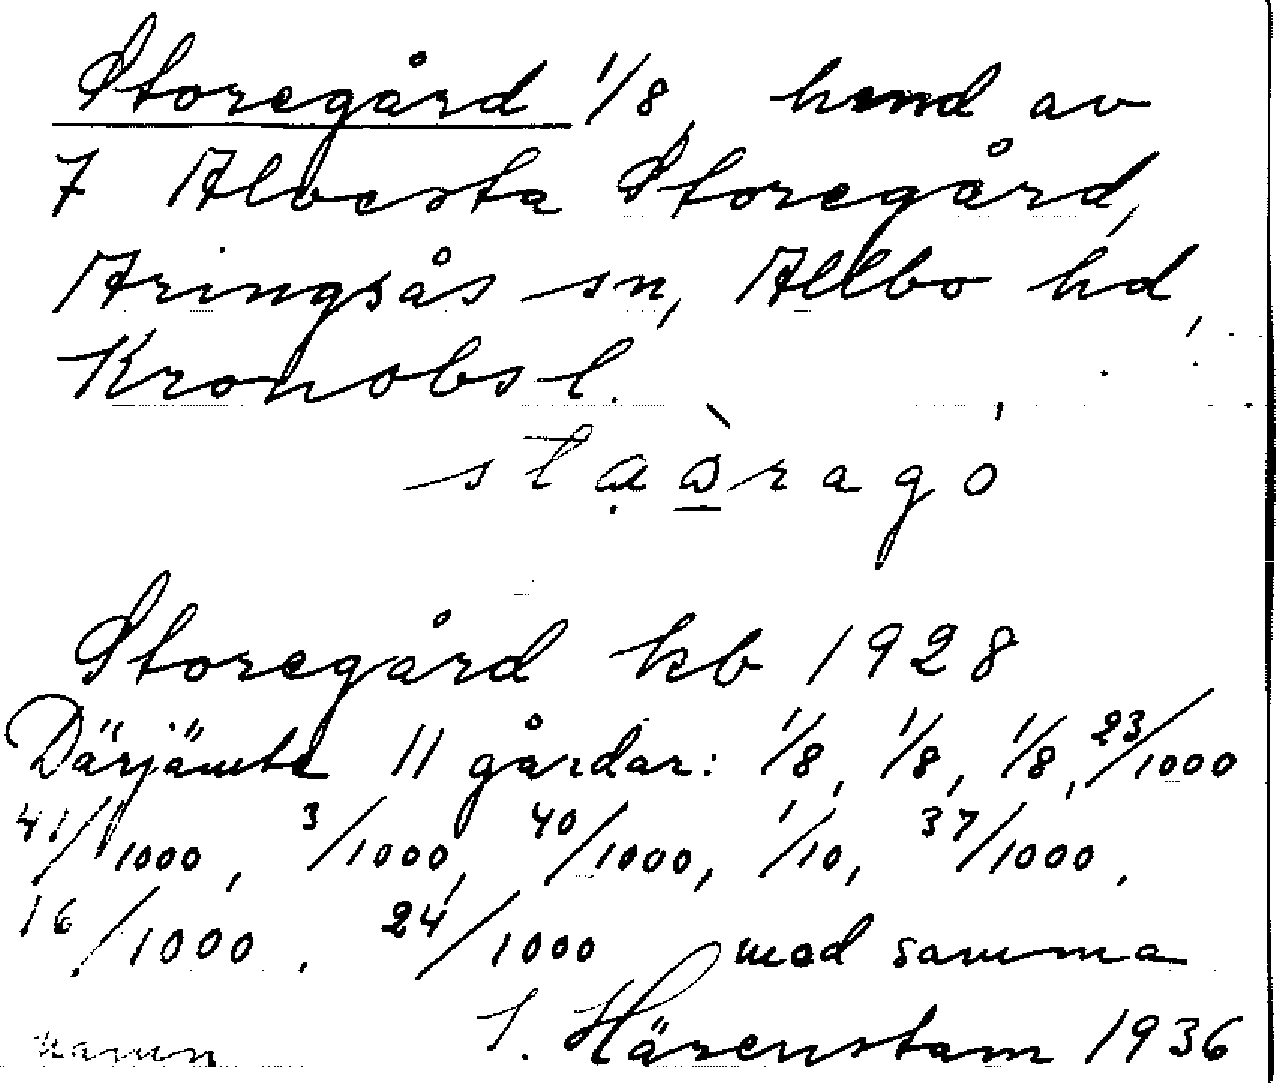 Storegård 1/8, hemd av
7 Alvesta Storegård,
Aringsås sn, Allbo hd,
Kronobs l.
sta̤̣å̀ragó
Storegård kb 1928
Därjämte 11 gårdar: 1/8, 1/8, 1/8, 23/1000
41/1000, 3/1000, 40/1000, 1/10, 37/1000,
16/1000, 24/1000 med samma
namn J. Härenstam 1936